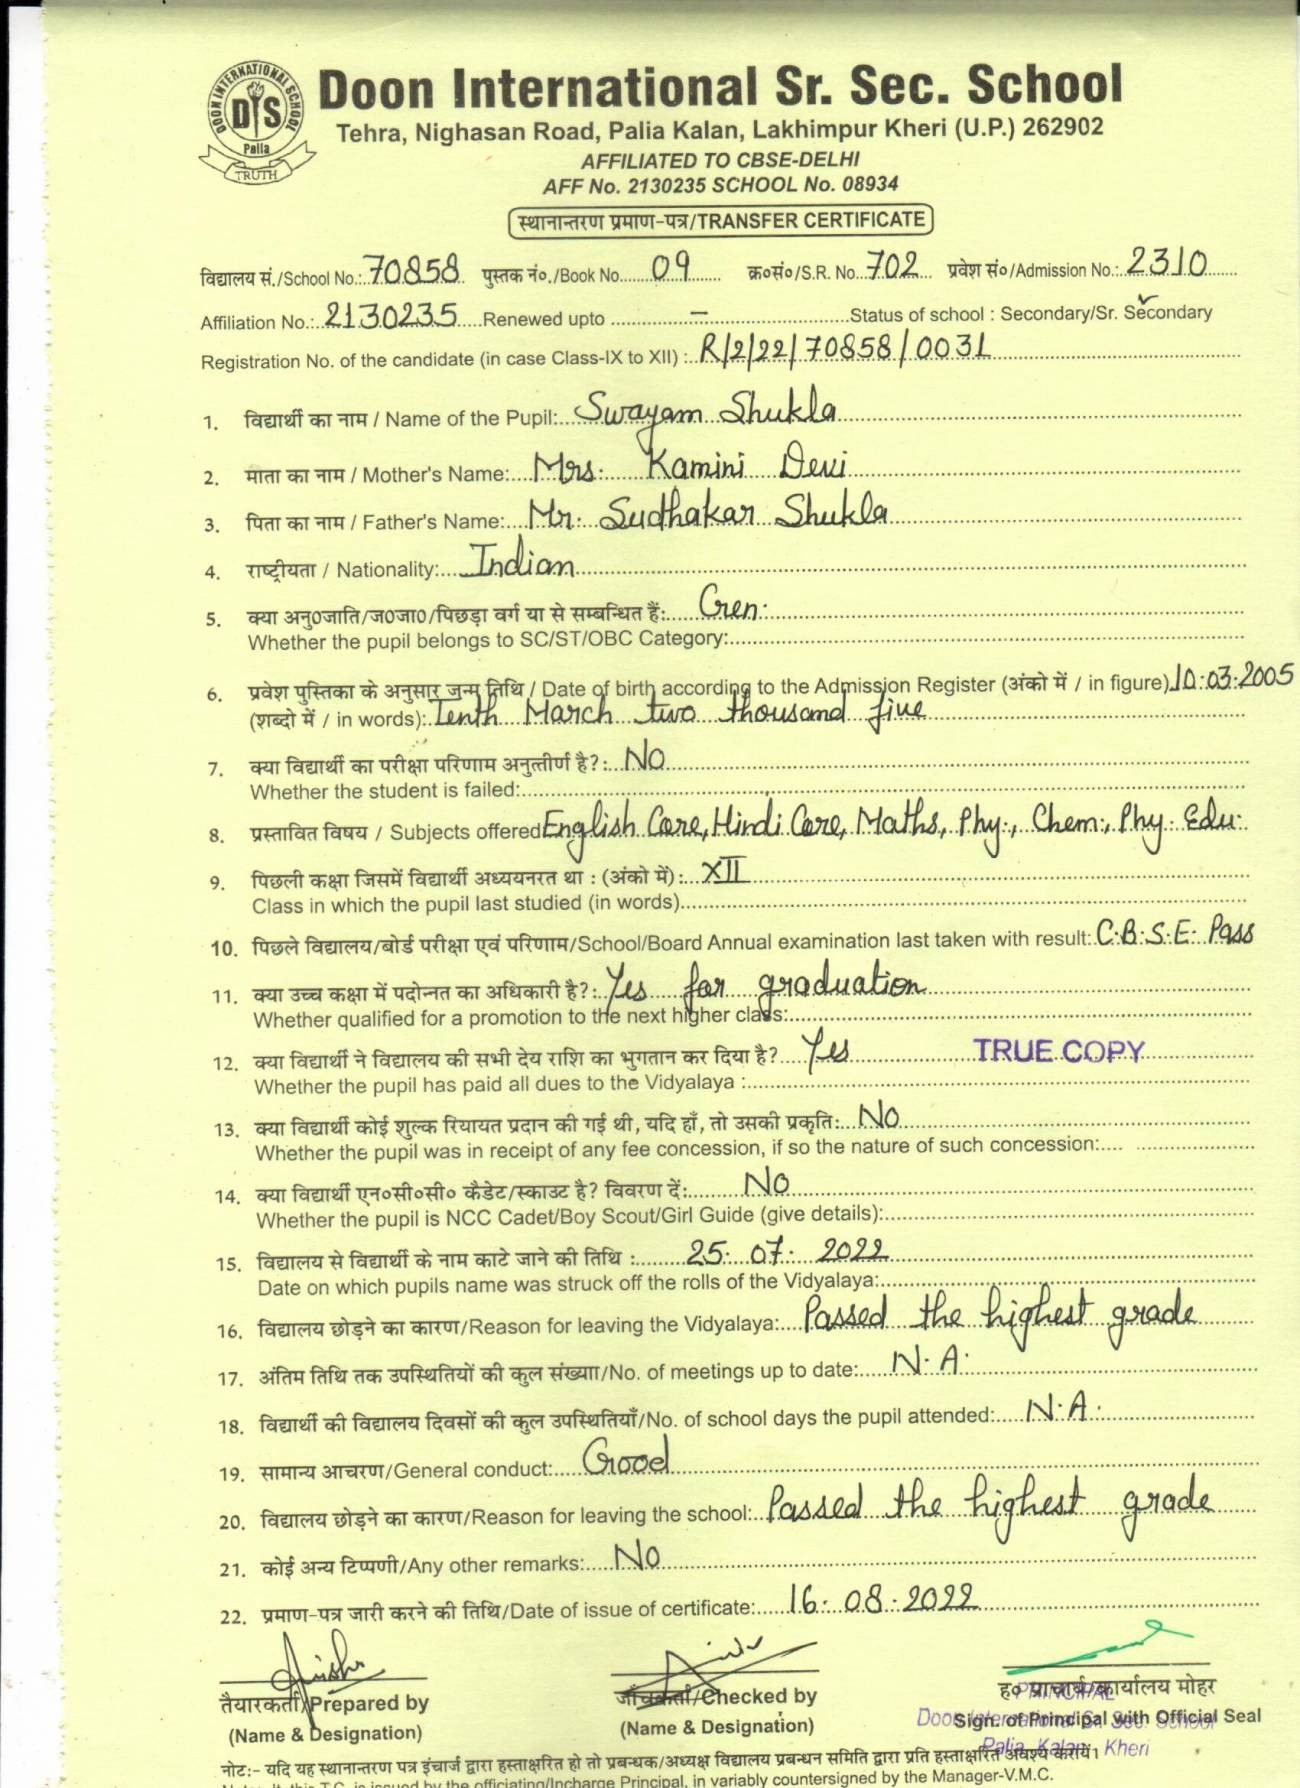 DOON INTERNATIONAL SCHOOL
DIS
Palia
TRUTH
Doon International Sr. Sec. School
Tehra, Nighasan Road, Palia Kalan, Lakhimpur Kheri (U.P.) 262902
AFFILIATED TO CBSE-DELHI
AFF No. 2130235 SCHOOL No. 08934
स्थानान्तरण प्रमाण-पत्र/TRANSFER CERTIFICATE
विद्यालय सं./School No.: 70858 पुस्तक नं०./Book No. 09 क्र०सं०/S.R. No. 702 प्रवेश सं०/Admission No.: 2310
Affiliation No.: 2130235 Renewed upto – Status of school : Secondary/Sr. Secondary ✓
Registration No. of the candidate (in case Class-IX to XII) : R/2/22/70858/0031
1. विद्यार्थी का नाम / Name of the Pupil: Swayam Shukla
2. माता का नाम / Mother's Name: Mrs. Kamini Devi
3. पिता का नाम / Father's Name: Mr. Sudhakar Shukla
4. राष्ट्रीयता / Nationality: Indian
5. क्या अनु0जाति/ज0जा0/पिछड़ा वर्ग या से सम्बन्धित हैं: Gen.
Whether the pupil belongs to SC/ST/OBC Category:
6. प्रवेश पुस्तिका के अनुसार जन्म तिथि / Date of birth according to the Admission Register (अंको में / in figure) 10.03.2005
(शब्दो में / in words): Tenth March two thousand five
7. क्या विद्यार्थी का परीक्षा परिणाम अनुत्तीर्ण है?: No
Whether the student is failed:
8. प्रस्तावित विषय / Subjects offered English Core, Hindi Core, Maths, Phy., Chem., Phy. Edu.
9. पिछली कक्षा जिसमें विद्यार्थी अध्ययनरत था : (अंको में): XII
Class in which the pupil last studied (in words)
10. पिछले विद्यालय/बोर्ड परीक्षा एवं परिणाम/School/Board Annual examination last taken with result: C.B.S.E. Pass
11. क्या उच्च कक्षा में पदोन्नत का अधिकारी है?: Yes for graduation
Whether qualified for a promotion to the next higher class:
12. क्या विद्यार्थी ने विद्यालय की सभी देय राशि का भुगतान कर दिया है? Yes TRUE COPY
Whether the pupil has paid all dues to the Vidyalaya :
13. क्या विद्यार्थी कोई शुल्क रियायत प्रदान की गई थी, यदि हाँ, तो उसकी प्रकृति: No
Whether the pupil was in receipt of any fee concession, if so the nature of such concession:
14. क्या विद्यार्थी एन०सी०सी० कैडेट/स्काउट है? विवरण दें: No
Whether the pupil is NCC Cadet/Boy Scout/Girl Guide (give details):
15. विद्यालय से विद्यार्थी के नाम काटे जाने की तिथि : 25. 07. 2022
Date on which pupils name was struck off the rolls of the Vidyalaya:
16. विद्यालय छोड़ने का कारण/Reason for leaving the Vidyalaya: Passed the highest grade
17. अंतिम तिथि तक उपस्थितियों की कुल संख्या/No. of meetings up to date: N.A.
18. विद्यार्थी की विद्यालय दिवसों की कुल उपस्थितियाँ/No. of school days the pupil attended: N.A.
19. सामान्य आचरण/General conduct: Good
20. विद्यालय छोड़ने का कारण/Reason for leaving the school: Passed the highest grade
21. कोई अन्य टिप्पणी/Any other remarks: No
22. प्रमाण-पत्र जारी करने की तिथि/Date of issue of certificate: 16. 08. 2022
तैयारकर्ता/Prepared by जाँचकर्ता/Checked by ह० प्राचार्य/कार्यालय मोहर
PRINCIPAL
(Name & Designation) (Name & Designation) Sign. of Principal with Official Seal
Doon International Sr. Sec. School
Palia Kalan - Kheri
नोट:- यदि यह स्थानान्तरण पत्र इंचार्ज द्वारा हस्ताक्षरित हो तो प्रबन्धक/अध्यक्ष विद्यालय प्रबन्धन समिति द्वारा प्रति हस्ताक्षरित अवश्य करायें।
Note: It, this T.C. is issued by the officiating/Incharge Principal, in variably countersigned by the Manager-V.M.C.